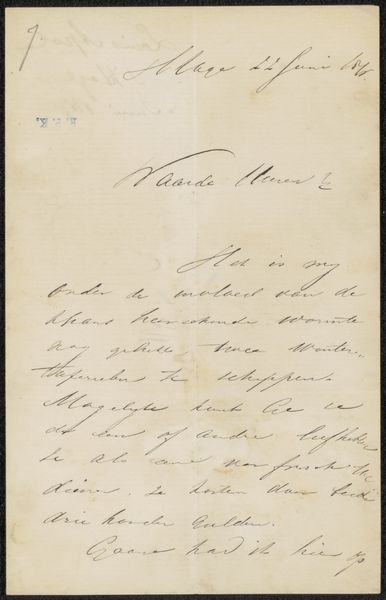 s'Hage 22 Juni 18
Waarde Heeren
Het is mij
onder de invloed van de
thans heerschende warmte
nog gelukt twee Winter-
tafereelen te scheppen.
Mogelijk kunt Ge ze
de een of andere liefhebber
ze als een verfrissch
dienen. ze kosten dan beide
drie honder Gulden.
Gaarne had ik hier op